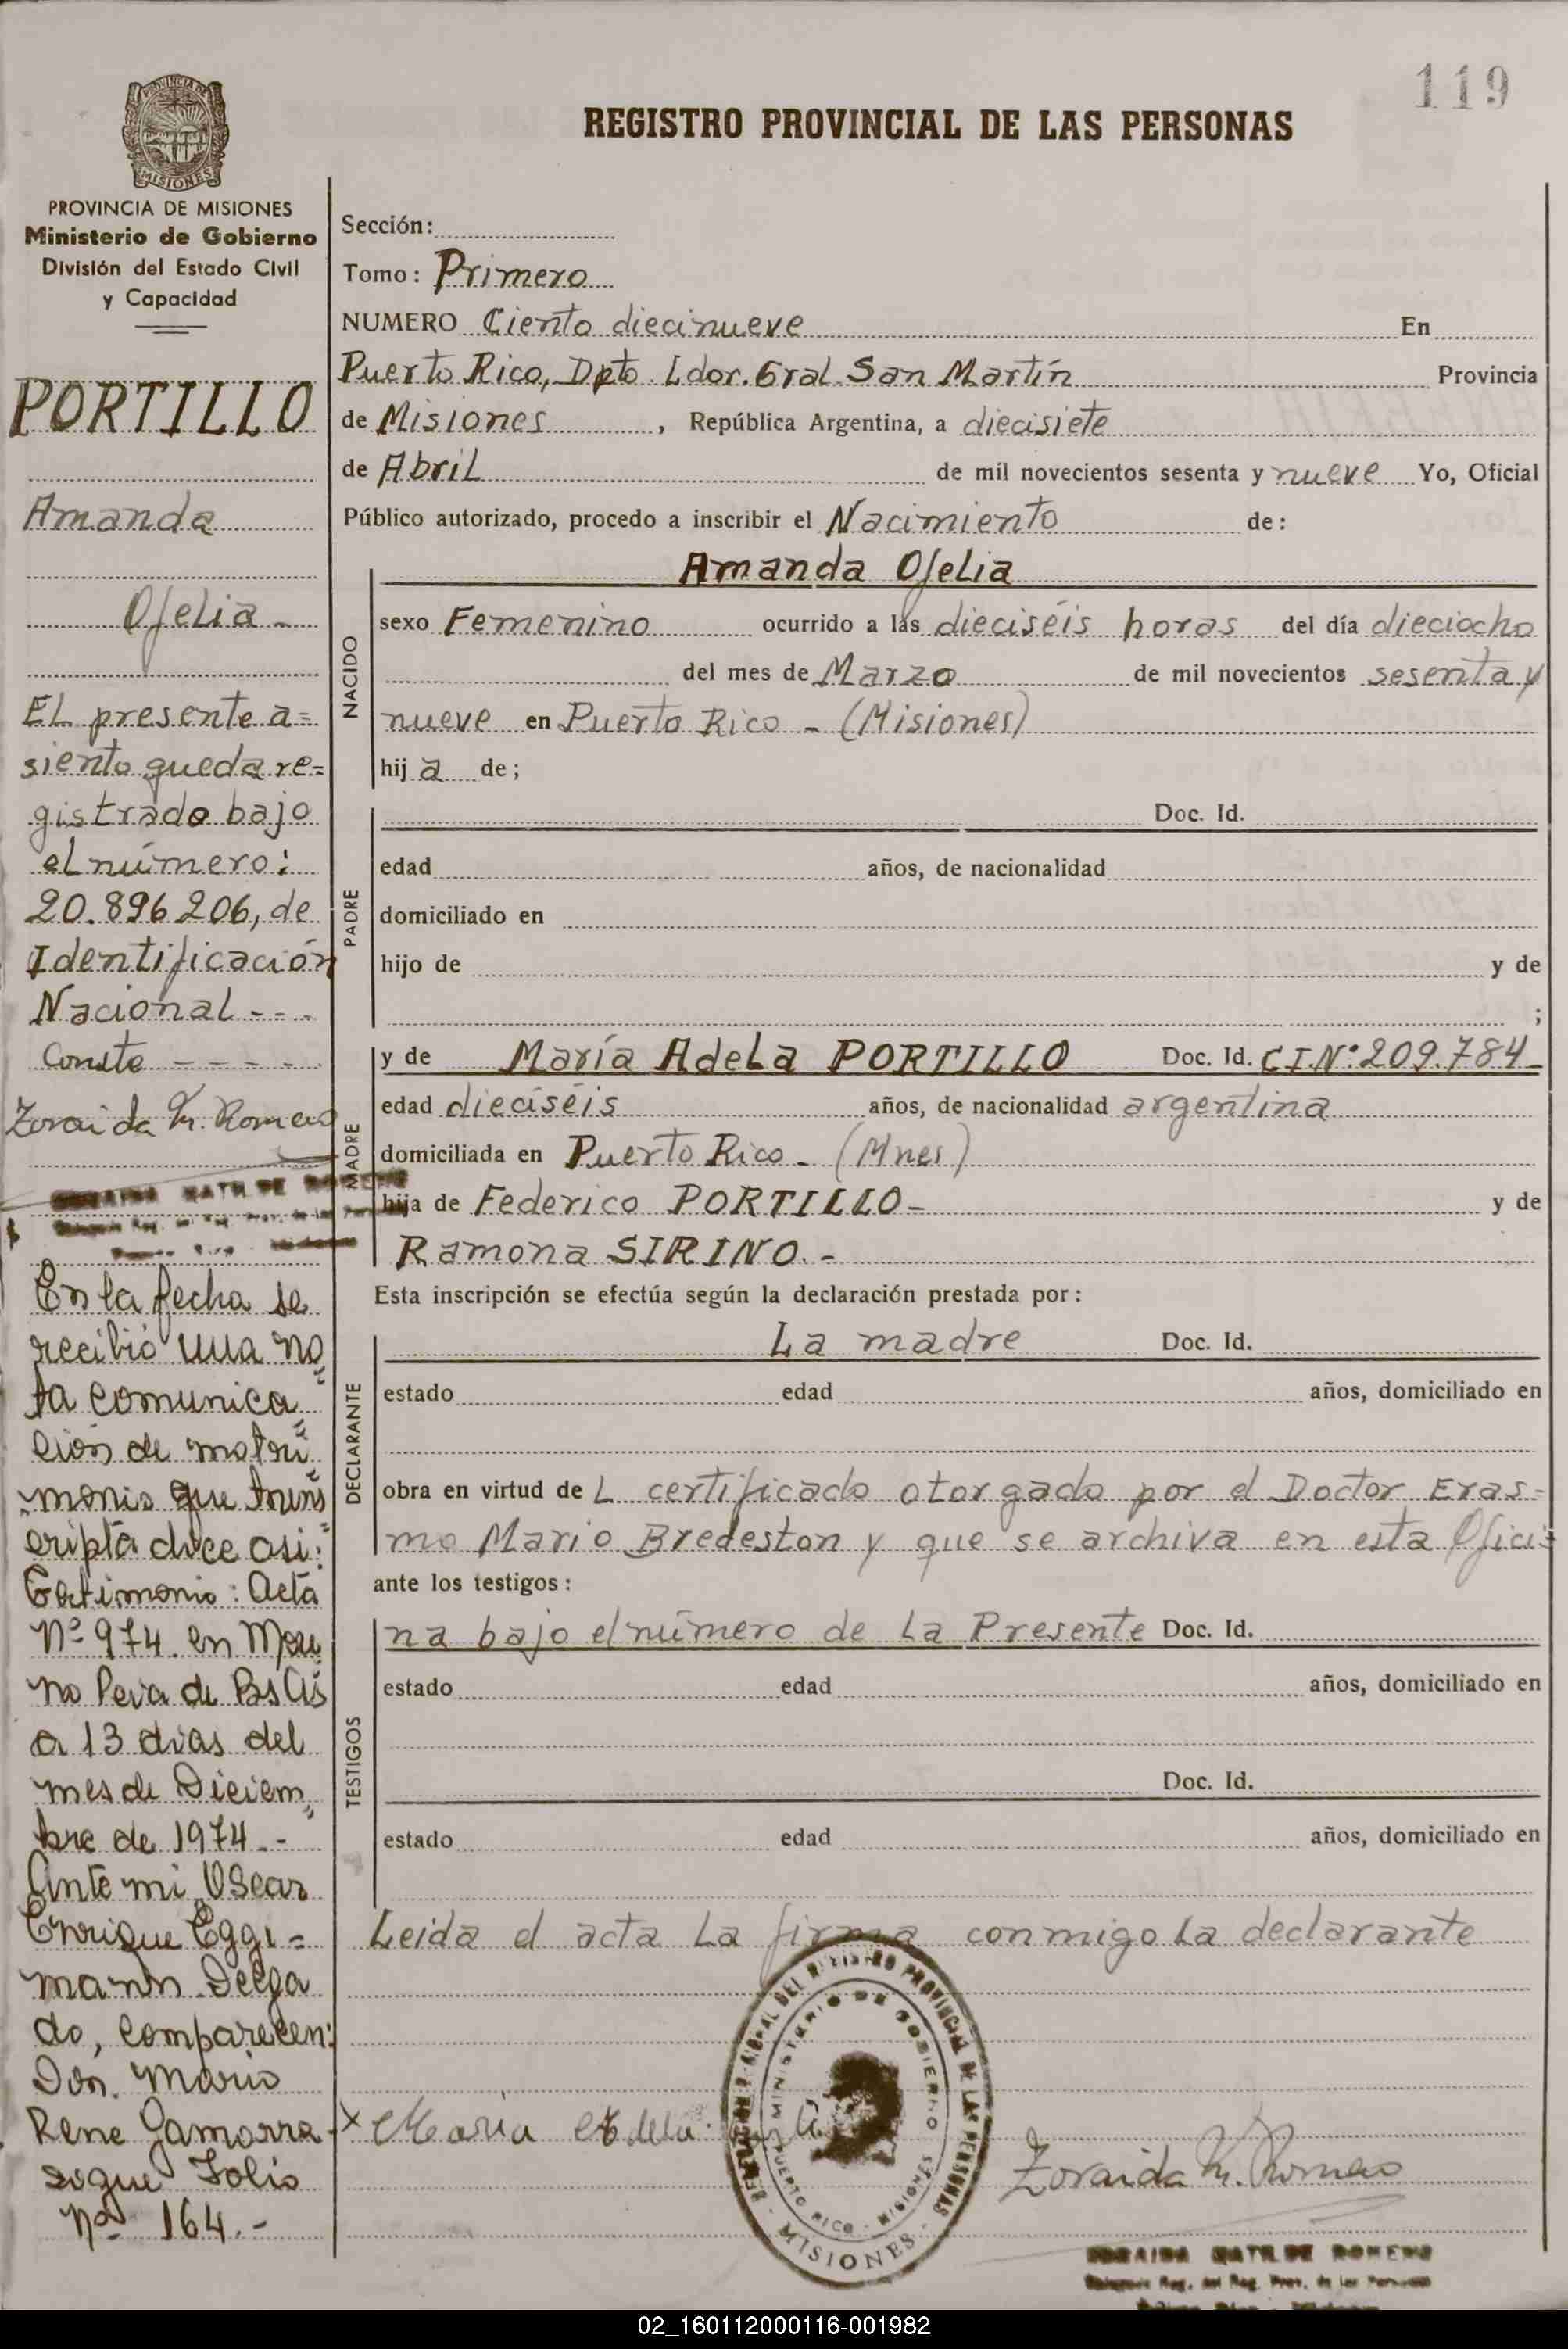 119
REGISTRO PROVINCIAL DE LAS PERSONAS
PROVINCIA DE MISIONES
Ministerio de Gobierno
División del Estado Civil
y Capacidad
PORTILLO
Amanda
Ofelia -
EL presente a=
siento queda re=
gistrado bajo
el número:
20.896.206, de
Identificación
Nacional - - -
Conste - - - -
Zoraida M. Romero
En la fecha se
recibió una no
ta comunica
ción de matri
monio que trans
cripta dice asi:
Testimonio: Acta
Nº 974. en
a 13 dias del
mes de Diciem
bre de 1974.-
Ante mi Oscar
Enrique Eggi=
mann Delga
do, comparecen:
Don. Mario
Rene Gamarra
sigue Folio
Nº 164.-
Sección:
Tomo: Primero
NUMERO Ciento diecinueve En
Puerto Rico, Dpto. Ldor. Gral. San Martín Provincia
de Misiones, República Argentina, a diecisiete
de Abril de mil novecientos sesenta y nueve Yo, Oficial
Público autorizado, procedo a inscribir el Nacimiento de:
NACIDO
Amanda Ofelia
sexo Femenino ocurrido a las dieciséis horas del día dieciocho
del mes de Marzo de mil novecientos sesenta y
nueve en Puerto Rico - (Misiones)
hij a de;
PADRE
Doc. Id.
edad años, de nacionalidad
domiciliado en
hijo de y de
;
MADRE
y de María Adela PORTILLO Doc. Id. C.I.Nº 209.784-
edad dieciséis años, de nacionalidad argentina
domiciliada en Puerto Rico - (Mnes)
hija de Federico PORTILLO - y de
Ramona SIRINO.-
Esta inscripción se efectúa según la declaración prestada por:
DECLARANTE
La madre Doc. Id.
estado edad años, domiciliado en
obra en virtud de L certificado otorgado por el Doctor Eras=
mo Mario Bredeston y que se archiva en esta Ofici=
ante los testigos:
TESTIGOS
na bajo el número de la Presente Doc. Id.
estado edad años, domiciliado en
Doc. Id.
estado edad años, domiciliado en
Leida el acta la firma conmigo la declarante
x Maria Adela
MINISTERIO DE GOBIERNO
PUERTO RICO - MISIONES
REGISTRO PROVINCIAL DE LAS PERSONAS
- MISIONES -
Zoraida M. Romero
ZORAIDA MATILDE ROMERO
02_160112000116-001982